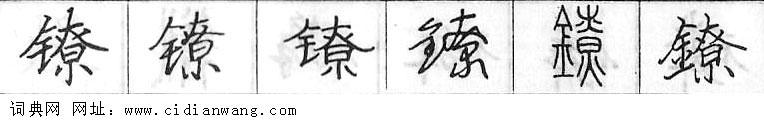 镣 镣 镣 鐐 鐐 鐐
词典网 网址：www.cidianwang.com